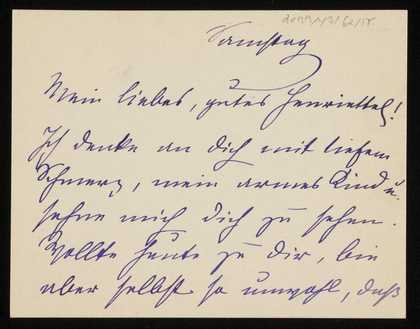 Samstag
Mein liebes, gutes Henriettel!
Ich denke an Dich mit tiefem
Schmerz, mein armes Kind u.
sehne mich Dich zu sehen.
Wollte heute zu Dir, bin
aber selbst so unwohl, daß